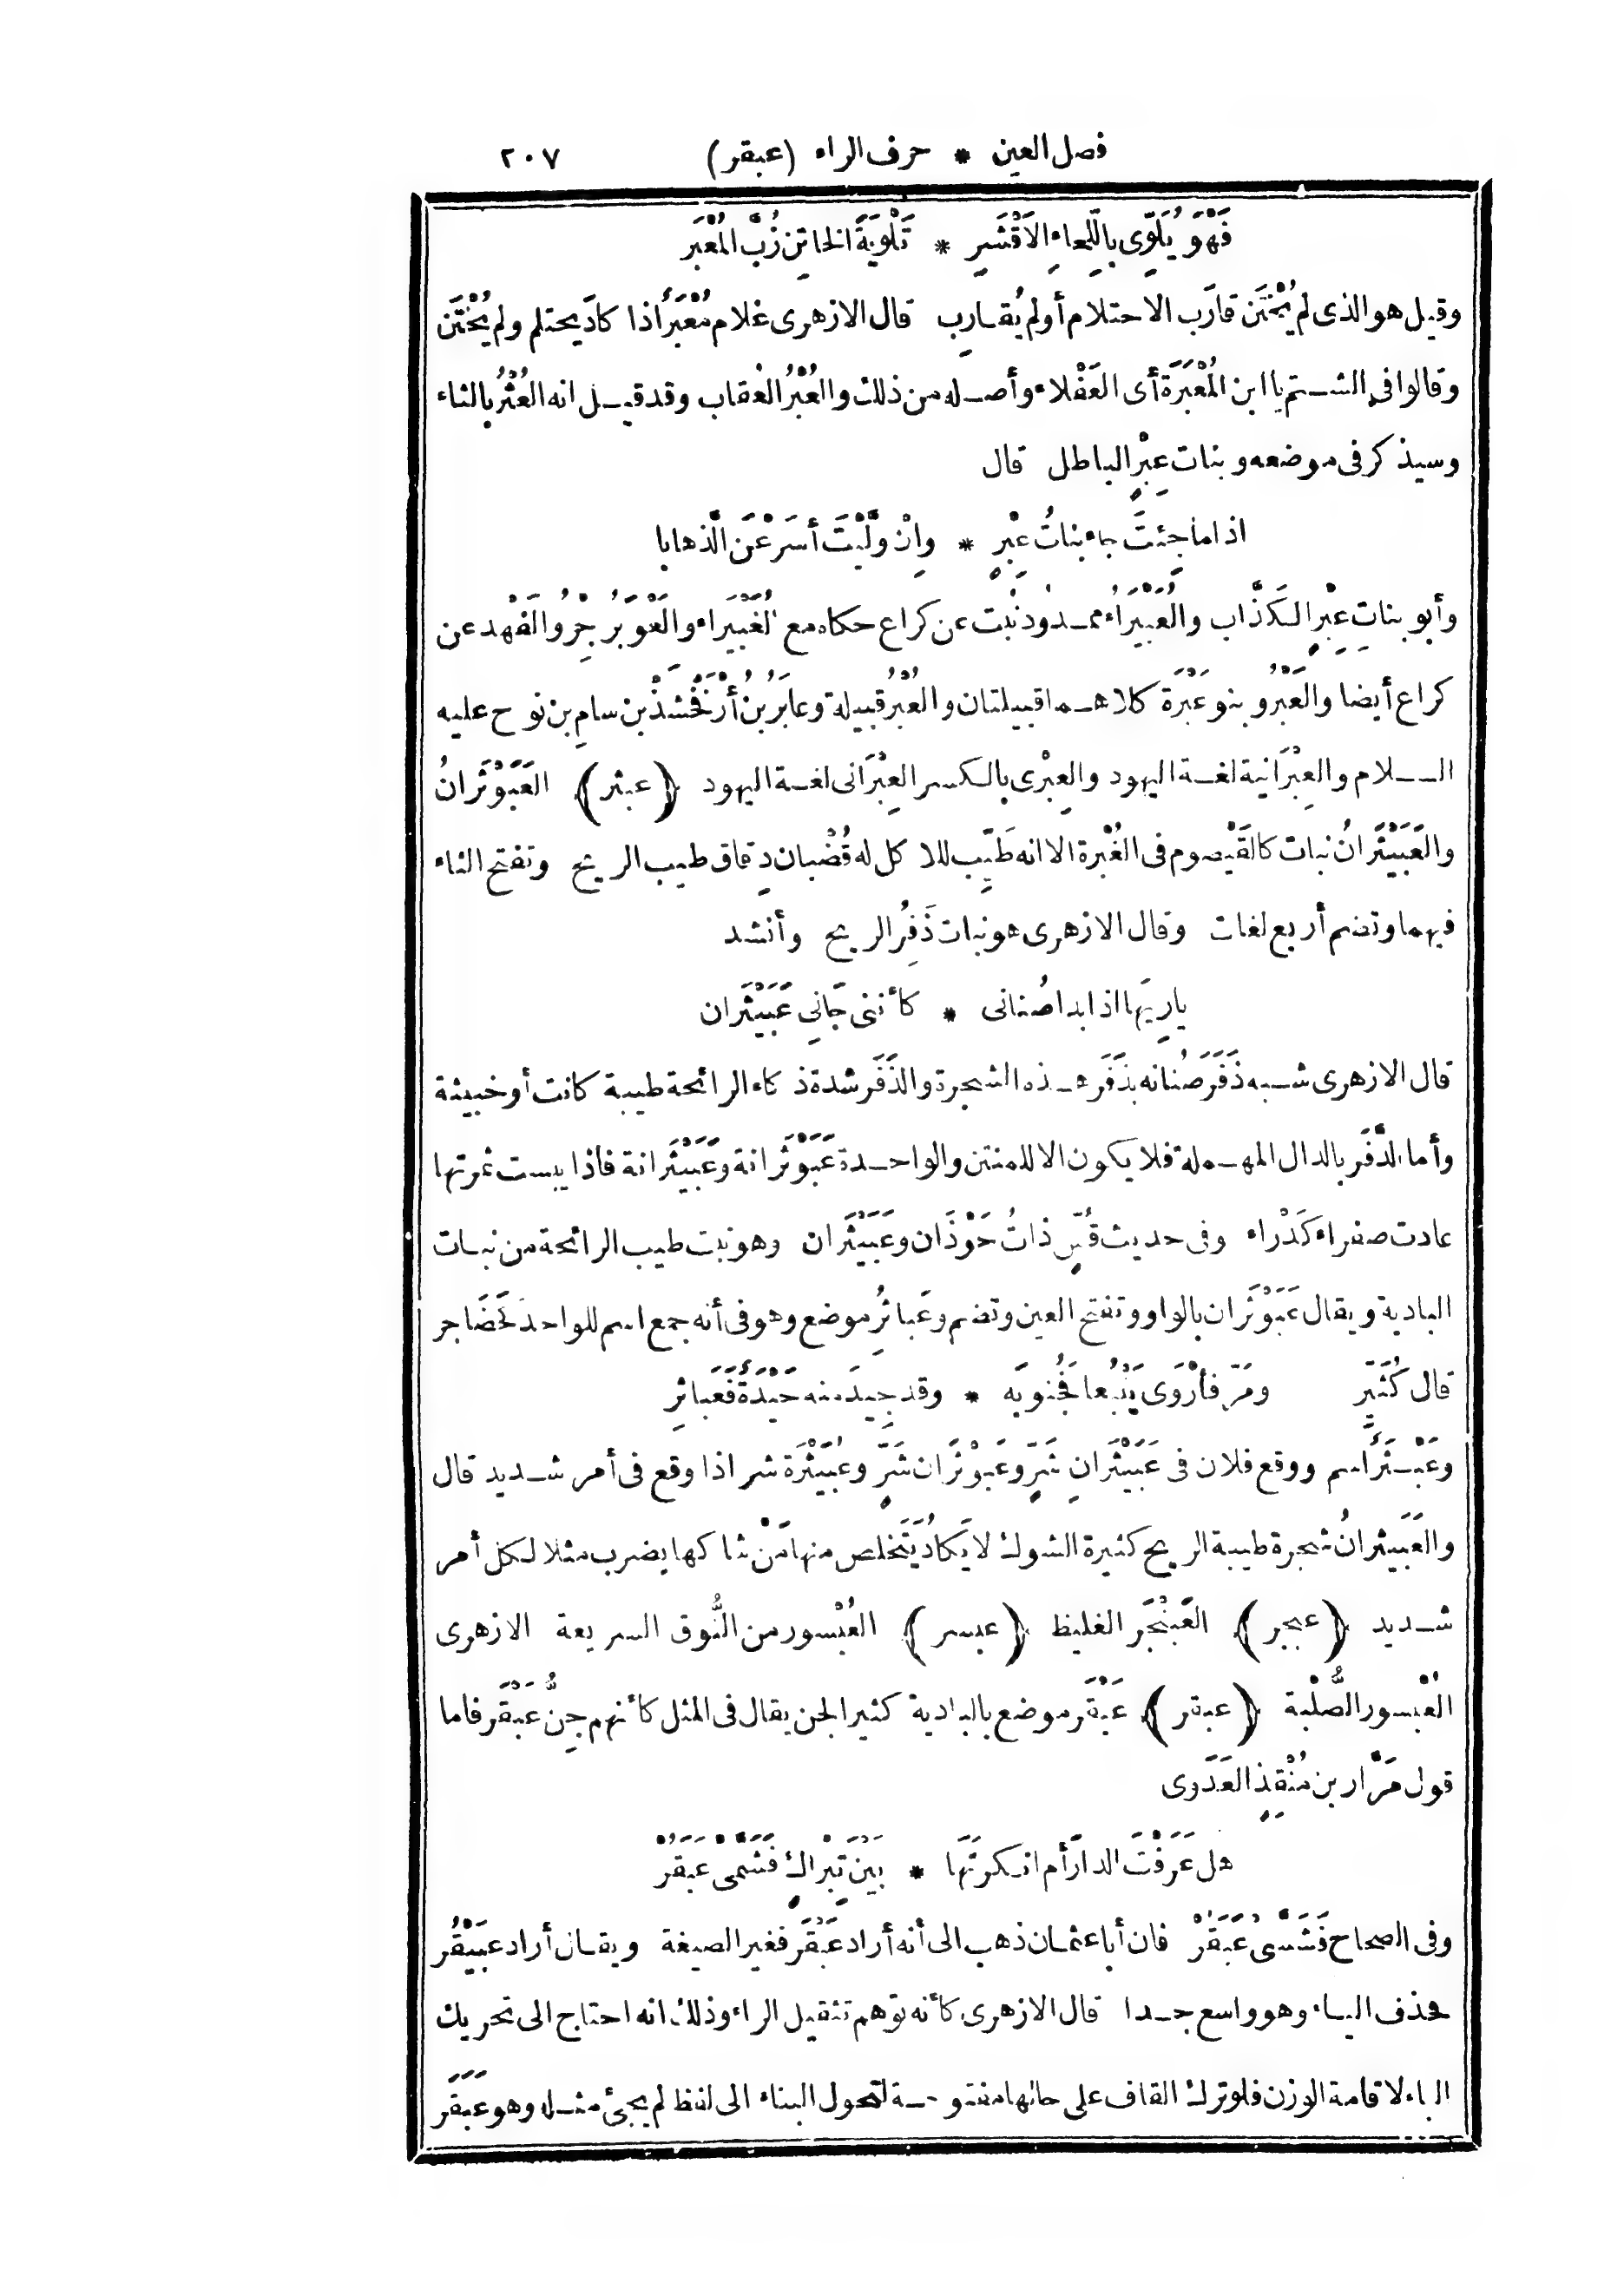 فصل العين * حرف الراء (عبقر) ٢٠٧
فَهْوَ يُلَوِّى باللِّحاءِ الاَقْشَرِ * تَلْوِيَةَ الخاتِنِ زُبَّ المُعْبَرِ
وقيل هو الذى لم يُخْتَن قارَب الاحتلام أو لم يُقارِب قال الازهرى غلام مُعْبَرٌ أذا كادَ يحتلم ولم يُخْتَن
وقالوا فى الشتم يا ابن المُعْبَرَة أى العَفْلاء وأصله من ذلك والعُبْرُ العُقاب وقد قيل انه العُثْرُ بالثاء
وسيذكر فى موضعه وبنات عِبْرٍ الباطل قال
اذا ما جِئْتَ جاء بناتُ عِبْرٍ * وإنْ ولَّيْتَ أسْرَعْنَ الذَّهابا
وأبو بناتِ عِبْرٍ الكَذَّاب والعُبَيْراءُ ممدُود نَبْت عن كراع حكاه مع الغُبَيْراء والعَوْبَرُ جِرْوُ الفَهْد عن
كراع أيضا والعَبْرُ وبنو عَبْرَة كلاهما قبيلتان والعُبْرُ قبيلة وعابَرُ بنُ أَرْفَخْشَذْ بن سامِ بن نوح عليه
السلام والعِبْرَانية لغة اليهود والعِبْرى بالكسر العِبْرَانى لغة اليهود (عبثر) العَبَوْثَرانُ
والعَبَيْثَرانُ نبات كالقَيْصوم فى الغُبْرة الا انه طَيِّب للاكل له قُضْبان دِقاق طيب الريح وتفتح الثاء
فيهما وتضم أربع لغات وقال الازهرى هو نبات ذَفِرُ الريح وأنشد
يارِيَّها اذا بدا صُنانى * كأننى جَانِى عَبَيْثَران
قال الازهرى شبه ذَفَرَ صُنانه بذَفَر هذه الشجرة والذَّفَر شدة ذكاء الرائحة طيبة كانت أو خبيثة
وأما الدَّفَر بالدال المهملة فلا يكون الا للمنتن والواحدة عَبَوْثَرانة وعَبَيْثَرانة فاذا يبست ثمرتها
عادت صفراء كَدْراء وفى حديث قُسٍّ ذاتُ حَوْذَان وعَبَيْثَران وهو نبت طيب الرائحة من نبات
البادية ويقال عَبَوْثَران بالواو وتفتح العين وتضم وعَباثِرُ موضع وهو فى أنه جمع اسم للواحد كَحَضَاجر
قال كُثَيِّر ومَرّ فأرْوَى يَنْبُعا فجُنُوبَه * وقد جِيدَ منه حَيْدَةٌ فَعَباثِرِ
وعَبْثَرٌ اسم ووقع فلان فى عَبَيْثَرانِ شَرٍّ وعَبَوْثَران شَرٍّ وعُبَيْثَرة شر اذا وقع فى أمر شديد قال
والعَبَيْثَرانُ شجرة طيبة الريح كثيرة الشوك لا يَكادُ يَتَخلص منها مَنْ شاكها يضرب مثلا لكل أمر
شديد (عبجر) العَبَنْجَر الغليظ (عبسر) العُبْسور من النُّوق السريعة الازهرى
العُبْسور الصُّلْبة (عبقر) عَبْقَر موضع بالبادية كثير الجن يقال فى المثل كأنهم جِنُّ عَبْقَر فاما
قول مَرَّار بن مُنْقِذٍ العَدَوى
هل عَرَفْتَ الدارَ أم انكرتَها * بَيْنَ تِبْراكٍ فَشَمَّىْ عَبَقُرْ
وفى الصحاح فَشَسَّىْ عَبَقُرْ فان أبا عثمان ذهب الى أنه أراد عَبْقَر فغير الصيغة ويقال أراد عَبَيْقُر
فحذف الياء وهو واسع جدا قال الازهرى كأنه توّهم تثقيل الراء وذلك انه احتاج الى تحريك
الباء لاقامة الوزن فلو ترك القاف على حالها مفتوحة لتحول البناء الى لفظ لم يجئ مثله وهو عَبَقَر